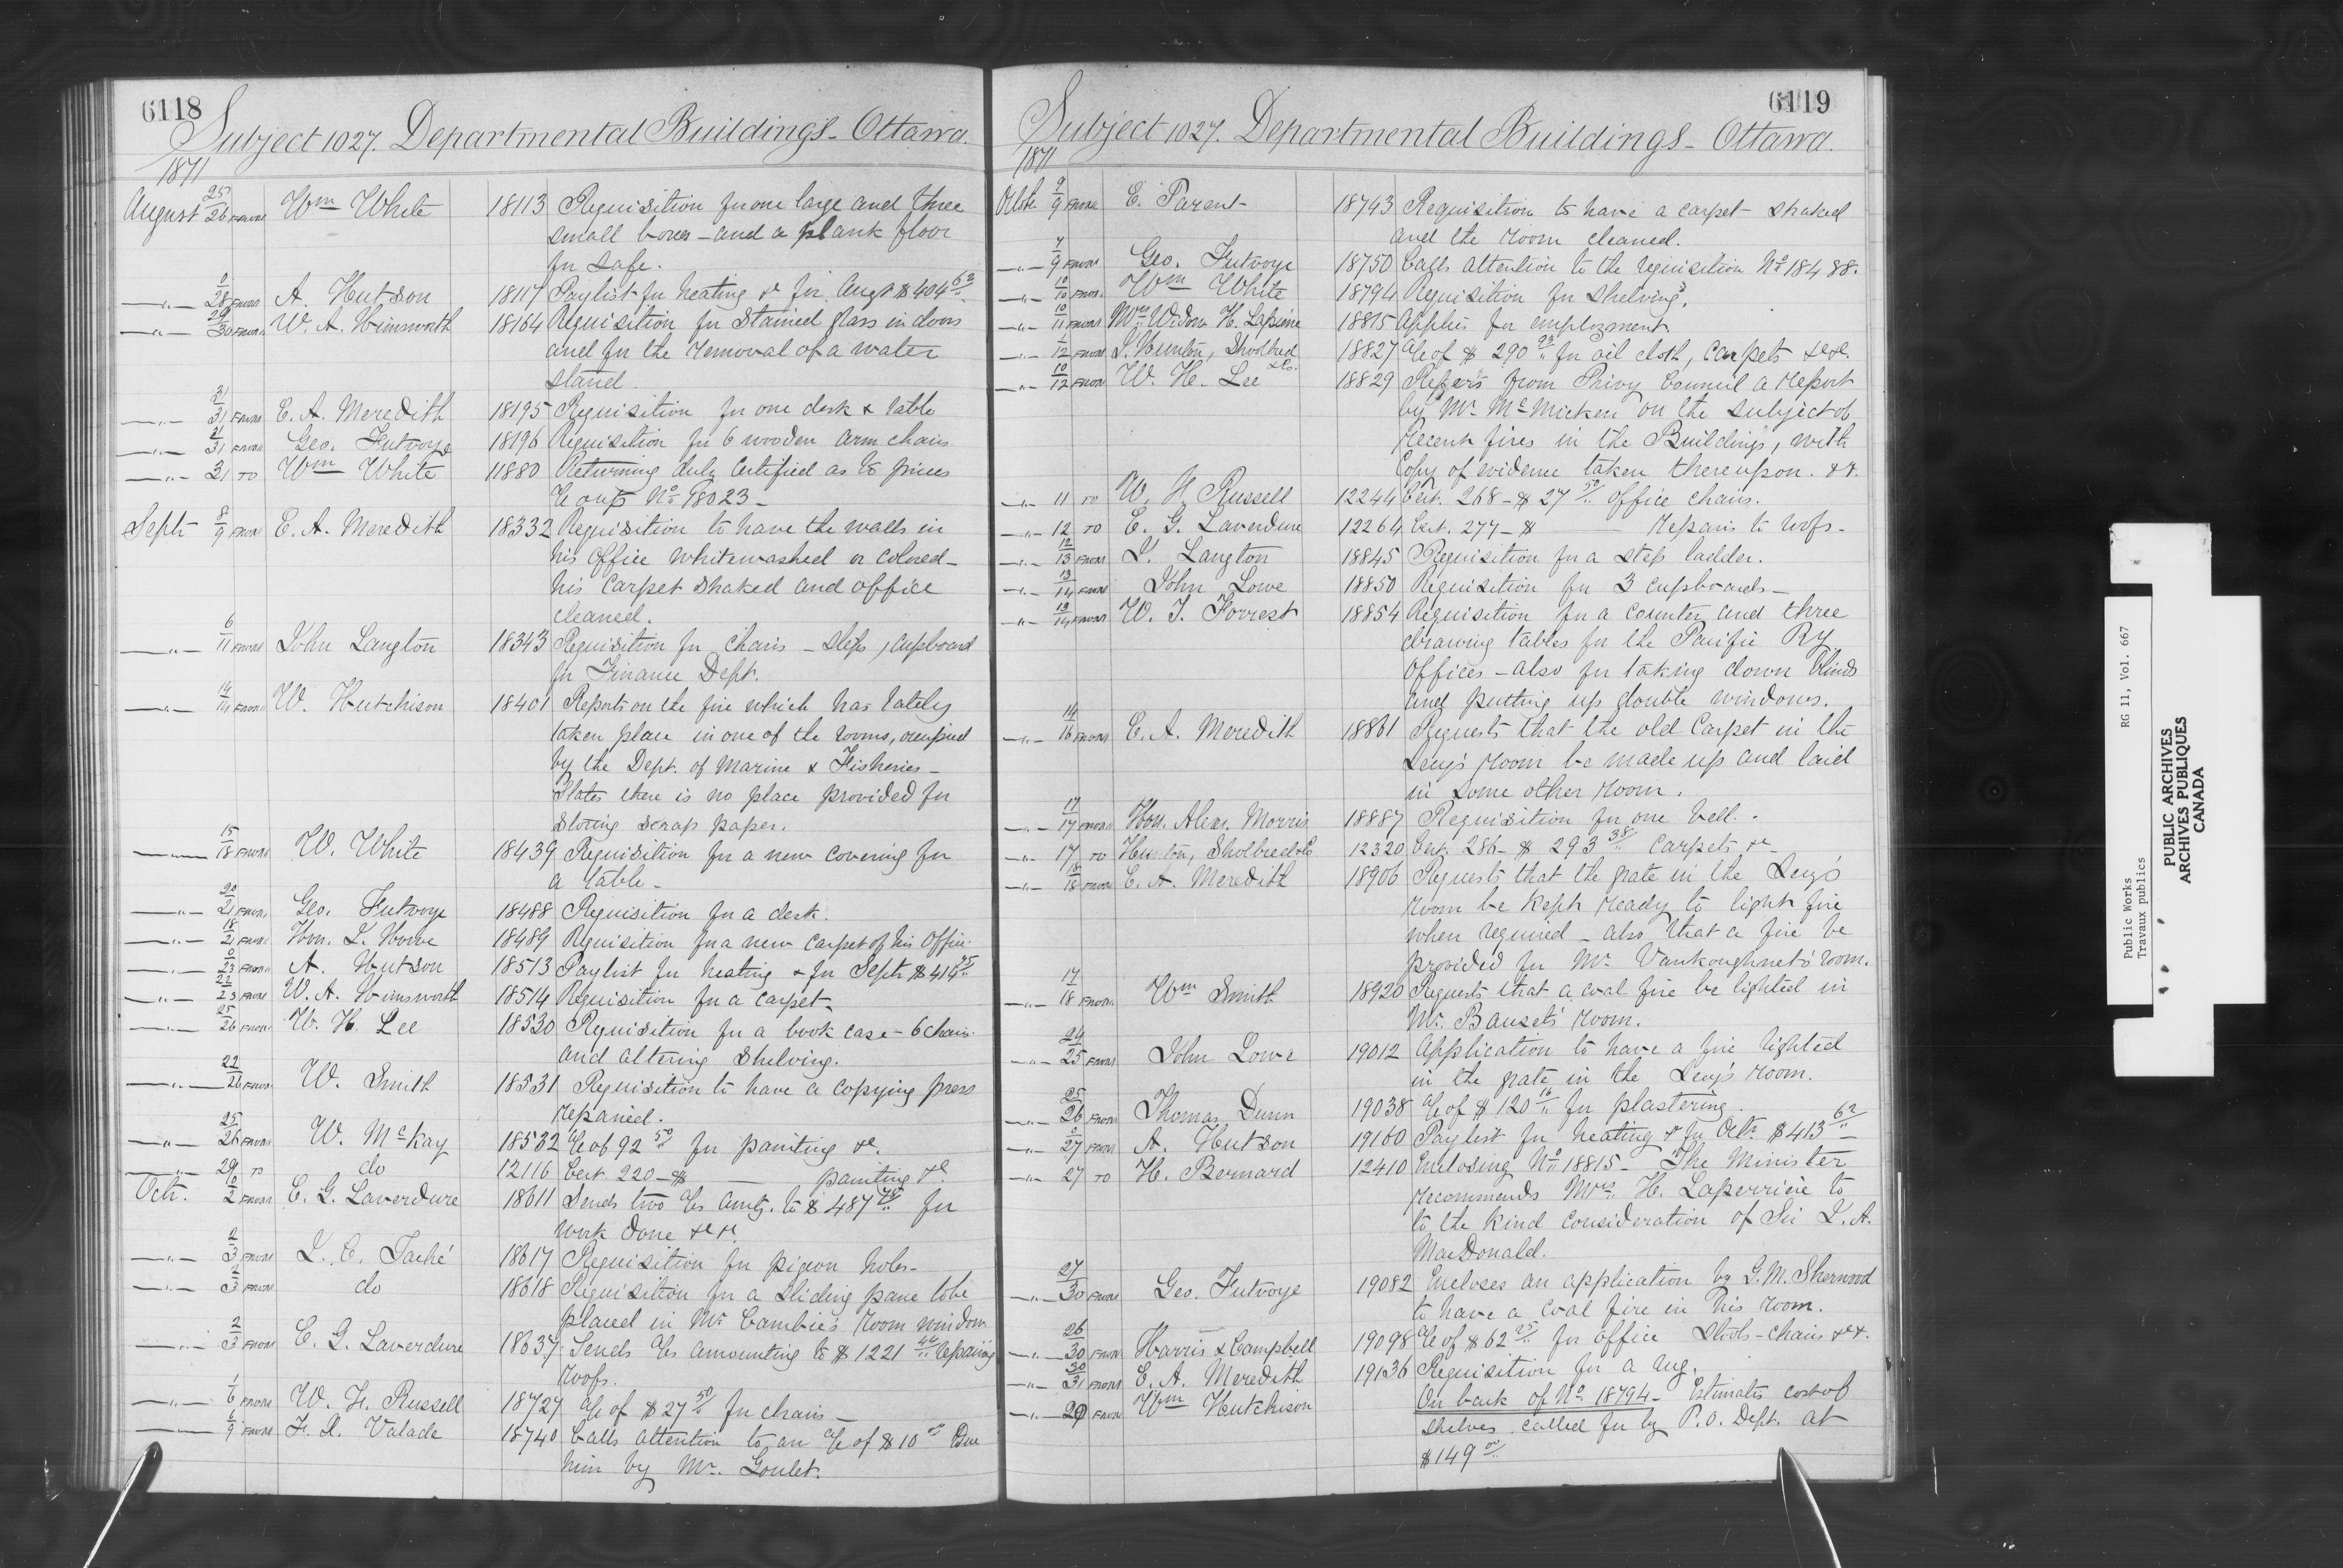 6118
Subject 1027. Departmental Buildings - Ottawa.
1871
August 25/26 FROM Wm White 18113 Requisition for one large and three
small boxes - and a plank floor
for safe.
" 0/28 FROM A. Hutson 18117 Paylist for heating &c for Augt $404 63
" 29/30 FROM W. A. Himsworth 18164 Requisition for Stained glass in doors
and for the removal of a water
stand.
" 31/31 FROM E. A. Meredith 18195 Requisition for one desk & table
" 31/31 FROM Geo. Futvoye 18196 Requisition for 6 wooden arm chairs
" 31 TO Wm White 11880 Returning duly Certified as to prices
No 18023 -
Sept 8/9 FROM E. A. Meredith 18332 Requisition to have the walls in
his Office whitewashed or colored -
his Carpet shaked and office
cleaned.
" 6/11 FROM John Langton 18343 Requisition for Chairs - Steps, Cupboard
for Finance Dept.
" 14/14 FROM W. Hutchison 18401 Reports on the fire which has lately
taken place in one of the rooms, occupied
by the Dept. of Marine & Fisheries -
States there is no place provided for
storing scrap paper.
" 15/18 FROM W. White 18439 Requisition for a new covering for
a table -
" 20/21 FROM Geo. Futvoye 18488 Requisition for a desk.
" 18/21 FROM Hon. J. Howe 18489 Requisition for a new carpet of his Office
" 0/23 FROM A. Hutson 18513 Paylist for heating & for Sept.
" 22/23 FROM W. A. Himsworth 18514 Requisition for a carpet -
" 25/26 FROM W. H. Lee 18530 Requisition for a book case - 6 chairs
and altering shelving.
" 22/26 FROM W. Smith 18531 Requisition to have a copying press
repaired.
" 25/26 FROM W. McKay 18532 A/c of 92 50 for painting &c.
" 29 TO do 12116 Cert. 220 - $ — painting &c
Oct. 0/2 FROM E. G. Laverdure 18611 Sends two A/cs amtg. to $487 for
work done &c &c.
" 2/3 FROM J. C. Taché 18617 Requisition for pigeon holes -
" 2/3 FROM do 18618 Requisition for a sliding pane to be
placed in Mr Cambie's room window
" 2/3 FROM E. G. Laverdure 18637 Sends A/cs amounting to $1221 44 Repairing
roofs.
" 1/6 FROM W. H. Russell 18727 A/c of $27 50 for chairs -
" 6/9 FROM F. X. Valade 18740 Calls attention to an A/c of $10 00 Due
him by Mr. Goulet.
6119
Subject 1027. Departmental Buildings - Ottawa.
1871
Octbr 9/9 FROM E. Parent 18743 Requisition to have a carpet shaked
and the room cleaned.
" 7/9 FROM Geo. Futvoye 18750 Calls attention to the requisition No 18488.
" 10/10 FROM Wm White 18794 Requisition for shelving.
" 10/11 FROM Mrs Widow H. Lapierre 18815 Applies for employment.
" 12 FROM J. Hunton, Shoolbred &Co. 18827 A/c of $290 93 for oil cloth, carpets &c&c.
" 10/12 FROM W. H. Lee 18829 Refers from Privy Council a report
by Mr McMicken on the subject of
recent fires in the Buildings, with
Copy of evidence taken thereupon. &c.
" 11 TO W. H. Russell 12244 Cert. 268 - $27 50 office chairs.
" 12 TO E. G. Laverdure 12264 Cert. 277 - $ — Repairs to roofs -
" 12/13 FROM J. Langton 18845 Requisition for a step ladder.
" 13/14 FROM John Lowe 18850 Requisition for 3 cupboards -
" 13/14 FROM W. J. Forrest 18854 Requisition for a counter and three
drawing tables for the Pacific Ry
Offices - also for taking down blinds
and putting up double windows.
" 14/16 FROM E. A. Meredith 18861 Requests that the old Carpet in the
Secy's room be made up and laid
in some other room.
" 17/17 FROM Hon. Alexr. Morris 18887 Requisition for one bell.
" 17 TO Hunton, Sholbred &Co 12320 Cert. 286 - $293 38 Carpets &c -
" 18/18 FROM E. A. Meredith 18906 Requests that the grate in the Secy's
room be kept ready to light fire
when required - also that a fire be
provided for Mr Vankoughnet's room.
" 17/18 FROM Wm Smith 18920 Requests that a coal fire be lighted in
Mr. Bauset's room.
" 24/25 FROM John Lowe 19012 Application to have a fire lighted
in the grate in the Secy's room.
" 25/26 FROM Thomas Dunn 19038 A/c of $120 16 for plastering.
" 0/27 FROM A. Hutson 19160 Paylist for heating & for Octr $413 62
" 27 TO H. Bernard 12410 Enclosing No 18815 - The Minister
recommends Mrs. H. Laperriere to
to the kind consideration of Sir J. A.
MacDonald.
" 27/30 FROM Geo. Futvoye 19082 Encloses an application by G. M. Sherwood
to have a coal fire in his room.
" 26/30 FROM Harris & Campbell 19098 A/c of $62 25 for office stools - chairs &c&c.
" 30/31 FROM E. A. Meredith 19136 Requisition for a rug.
" 29 FROM Wm Hutchison On back of No 18794 - Estimates cost of
shelves called for by P.O. Dept. at
$149 00
Public Works RG 11, Vol. 667
Travaux publics
PUBLIC ARCHIVES
ARCHIVES PUBLIQUES
CANADA